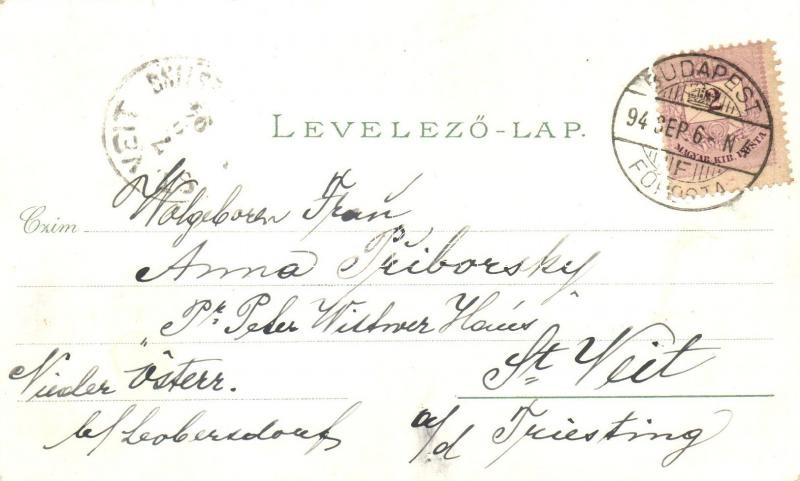 LEVELEZŐ-LAP.
BUDAPEST
94 SEP. 6 - N
F
FŐPOSTA
2
MAGYAR. KIR. POSTA
VEIT
Czim
Wolgeboren Frau
Anna Přiborsky
Pr Peter Wittwer Haüs
St Veit
Nieder Österr.
a/d Triesting
b/ Leobersdorf